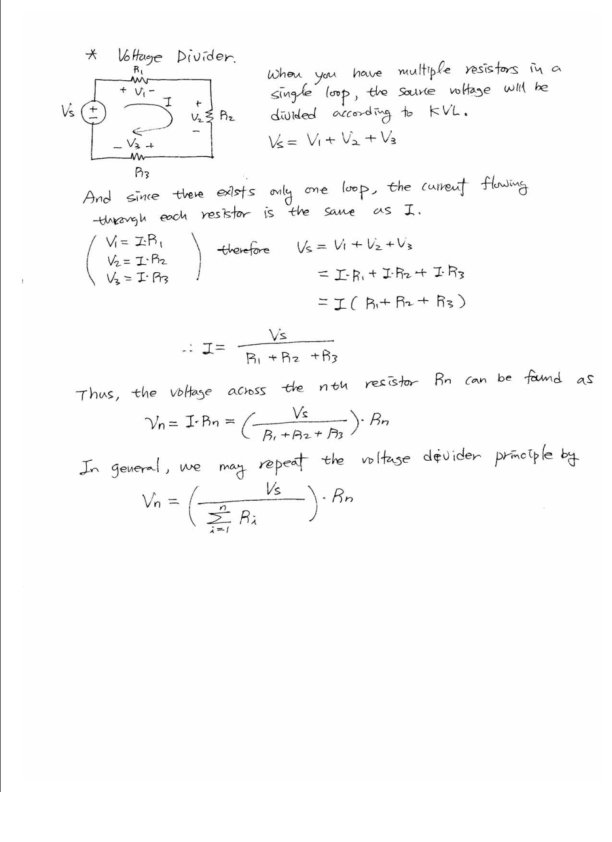 * Voltage Divider.
R1
+ V1 -
I
Vs
+
-
+
V2
-
R2
- V3 +
R3
When you have multiple resistors in a
single loop, the source voltage will be
divided according to KVL.
Vs = V1 + V2 + V3
And since there exists only one loop, the current flowing
through each resistor is the same as I.
V1 = I·R1
V2 = I·R2
V3 = I·R3
therefore Vs = V1 + V2 + V3
= I·R1 + I·R2 + I·R3
= I ( R1 + R2 + R3 )
∴ I = Vs / R1 + R2 + R3
Thus, the voltage across the nth resistor Rn can be found as
Vn = I·Rn = ( Vs / R1 + R2 + R3 ) · Rn
In general, we may repeat the voltage devider principle by
Vn = ( Vs / n Σ i=1 Ri ) · Rn